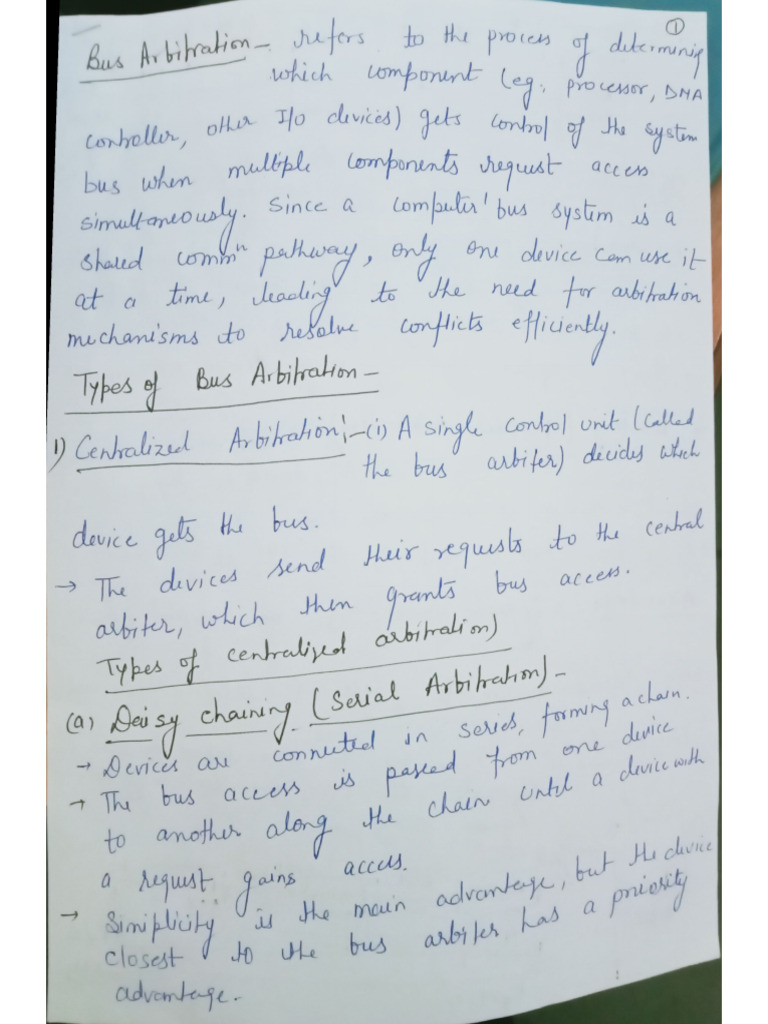 ①
Bus Arbitration - refers to the process of determining
which component (eg. processor, DMA
controller, other I/o devices) gets control of the system
bus when multiple components request access
simultaneously. Since a computer' bus system is a
shared commⁿ pathway, only one device can use it
at a time, leading to the need for arbitration
mechanisms to resolve conflicts efficiently.
Types of Bus Arbitration -
1) Centralized Arbitration :- (i) A single control unit (called
the bus arbiter) decides which
device gets the bus.
→ The devices send their requests to the central
arbiter, which then grants bus access.
Types of centralized arbitration)
(a) Daisy chaining (Serial Arbitration) -
→ Devices are connected in series, forming a chain.
→ The bus access is passed from one device
to another along the chain until a device with
a request gains access.
→ Simplicity is the main advantage, but the device
closest to the bus arbiter has a priority
advantage.